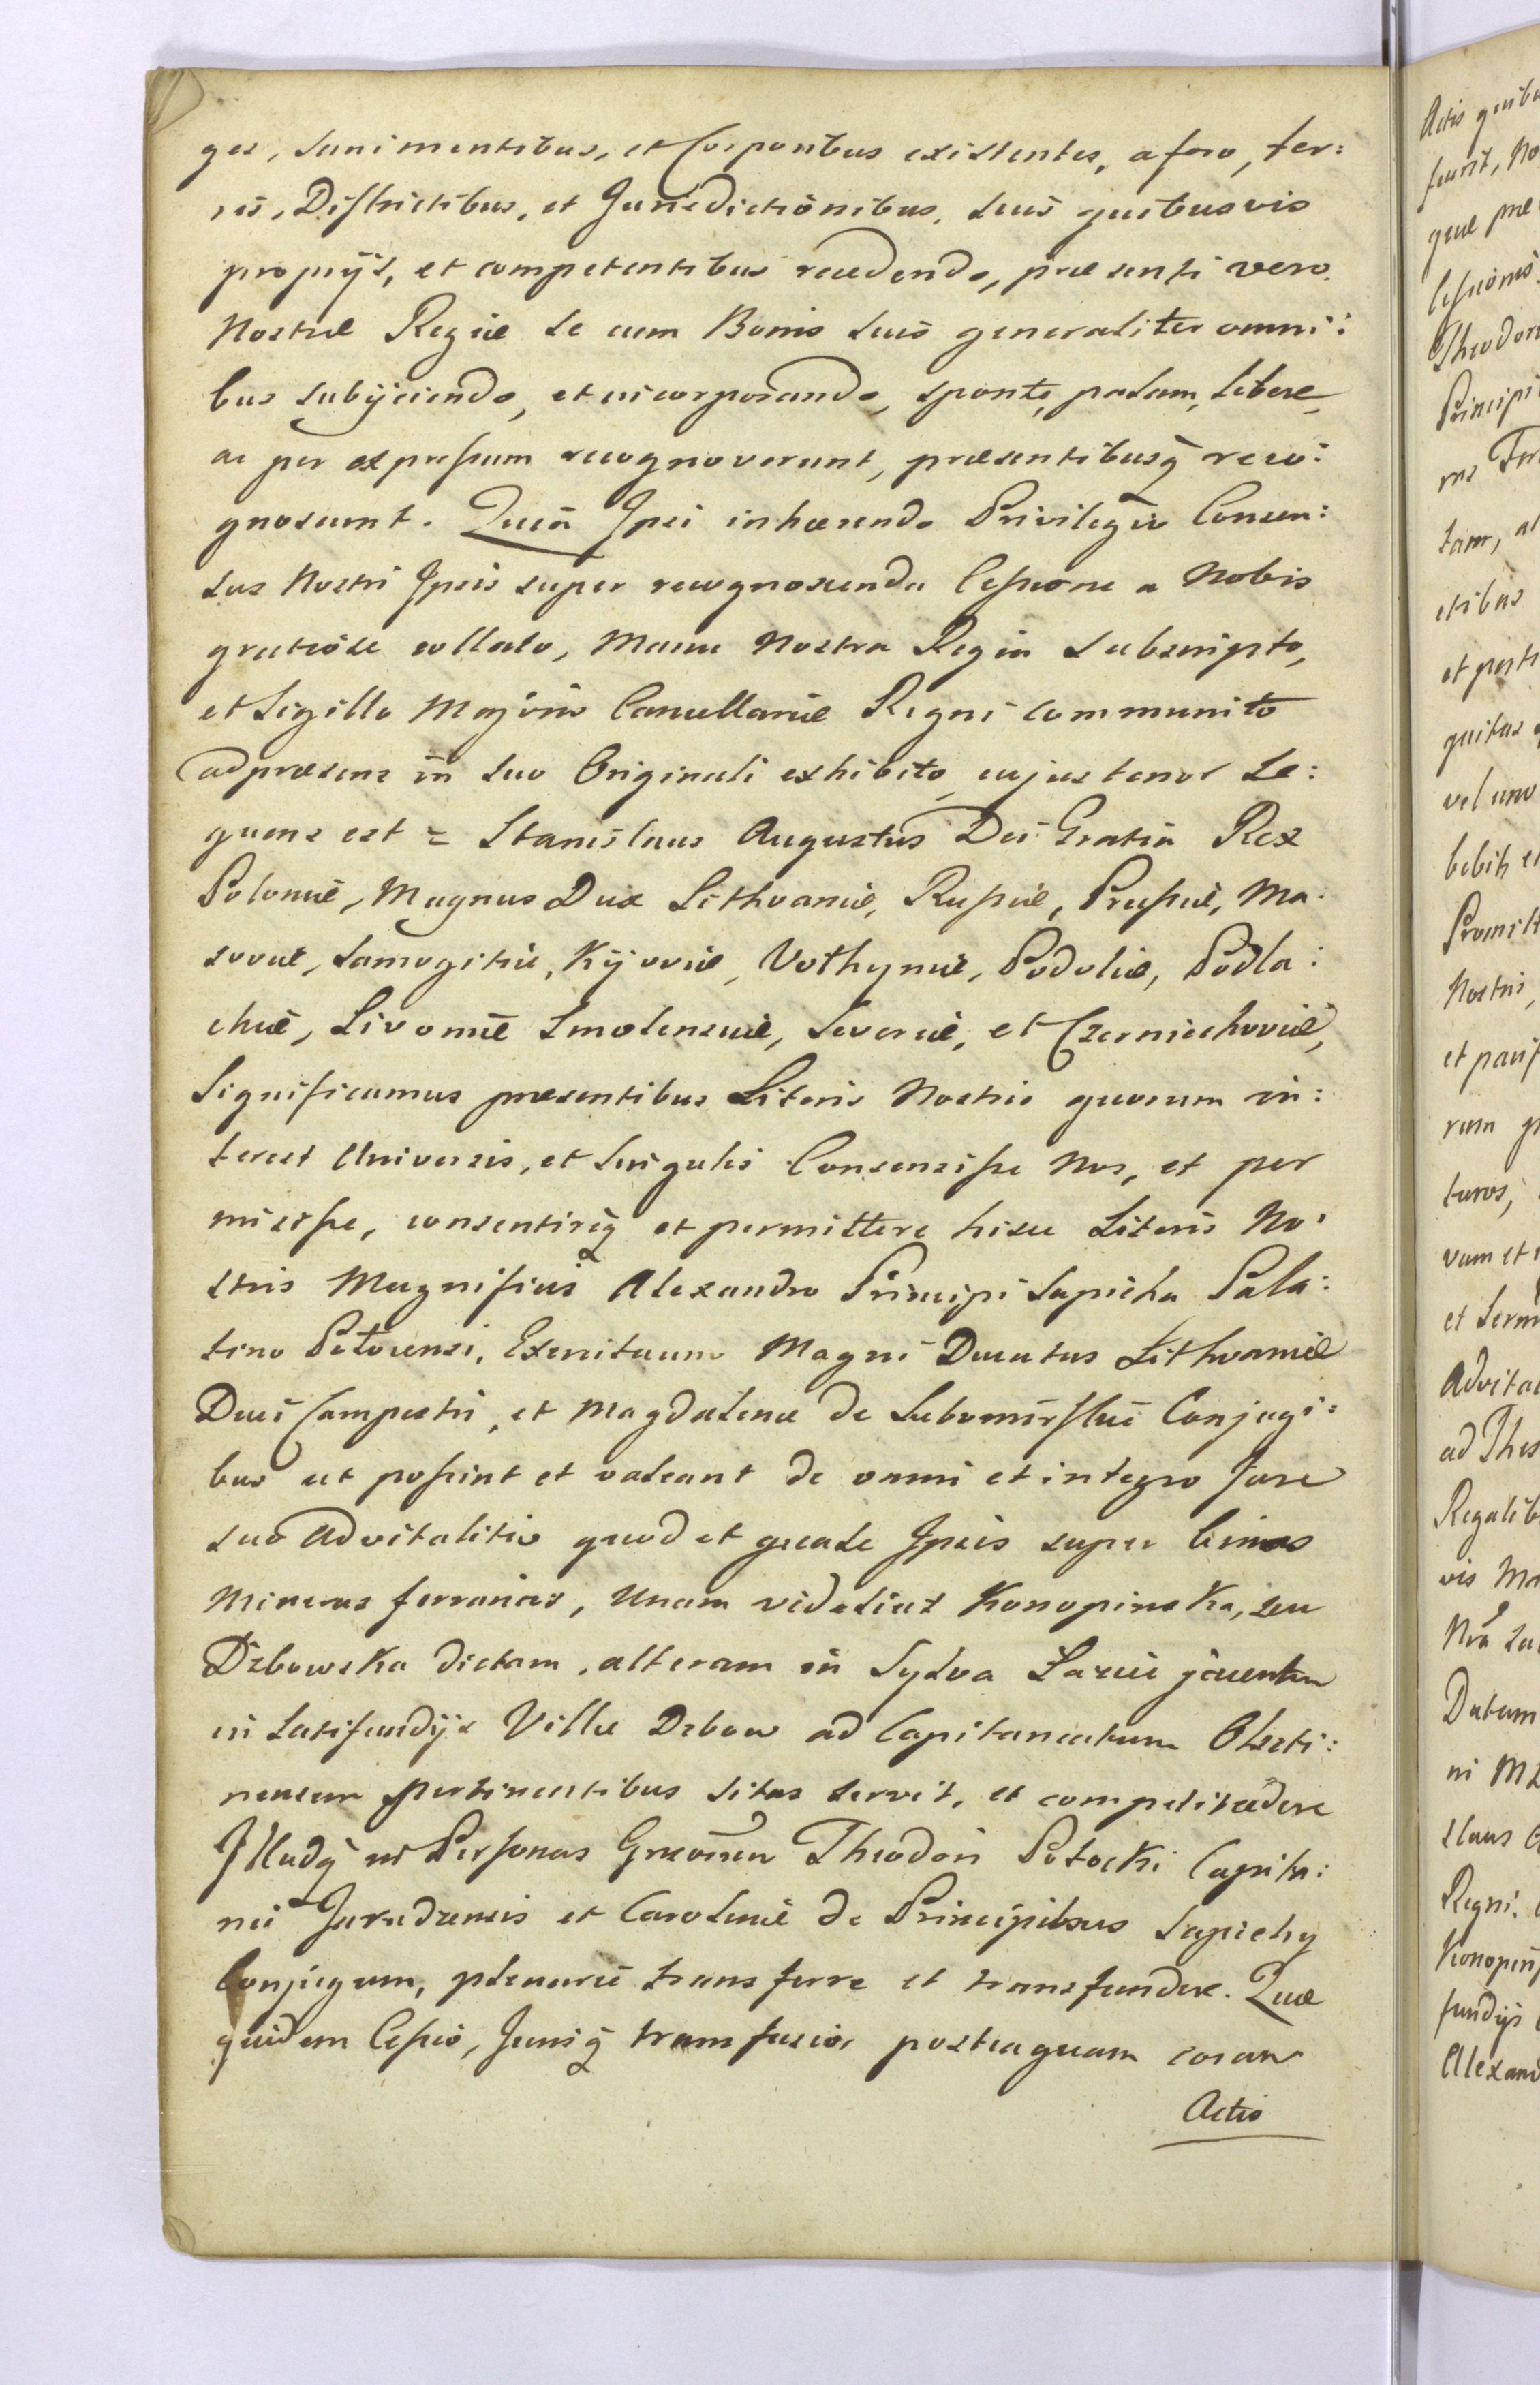 ges, sani mentibus, et Corporibus existentes, a foro, ter:
ris, Districtibus, et Jurisdictionibus, suis quibusvis
propriјs, et competentibus recedendo, præsenti vero
Nostræ Regiæ se cum Bonis suis generaliter omni:
bus subijciendo, et incorporando, sponte, palam, libere,
ac per expressum recognoverunt, præsentibusq̃ reco:
gnoscunt. Quia Ipsi inhærendo Privilegio Consen:
sus Nostri Ipsis super recognoscenda Cessione a Nobis
gratiose collato, Manu Nostra Regia subscripto,
et Sigillo Majoris Cancellariæ Regni communito
ad præsens in suo Originali exhibito, cujus tenor se:
quens est = Stanislaus Augustus Dei Gratia Rex
Poloniæ, Magnus Dux Lithvaniæ, Russiæ, Prussiæ, Ma:
soviæ, Samogitiæ, Kijoviæ, Volhyniæ, Podoliæ, Podla:
chiæ, Livoniæ Smolensciæ, Severiæ, et Czerniechoviæ,
Significamus præsentibus Literis Nostris quorum in:
terest Universis, et Singulis Consensisse Nos, et per
misisse, consentireq̃ et permittere hisce Literis No:
stris Magnificis Alexandro Principi Sapieha Pala:
tino Polocensi, Exercituum Magni Ducatus Lithvaniæ
Duci Campestri, et Magdalenæ de Lubomirskie Conjugi:
bus ut possint et valeant de omni et integro Jure
suo Advitalitio quod et quale Ipsis super binas
Mineras ferrarias, Unam videlicet Konopinska, seu
Dzbowska dictam, alteram in Sylva Lazie jacentem
in Latifundijs Villæ Dzbow ad Capitaneatum Olszti:
nensem pertinentibus sitas servit, et competit cedere
Illudq̃ in Personas Grosorum Theodori Potocki Capita:
nei et Carolinæ de Principibus Sapiehy
Conjugum, plenarie transferre et transfundere. Quæ
quidem Cessio, Jurisq̃ transfusio, posteaquam coram
Actis

Actis quibu
fuerit, No
quæ præ
Cessionis
Theodor
Principi
tam, al
etibus
quitus
vel uno
Promitt
Nostris,
rum
turos,
vam et
Advital
ad Thes
Regalib
vis Ma
Datum
ni M
slaus
Regni.
Konopin
fundijs
Alexand